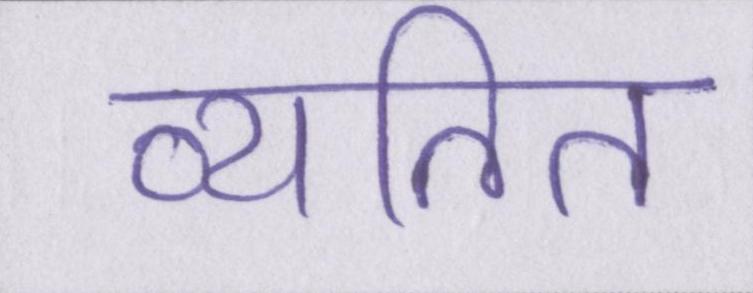 व्यतित